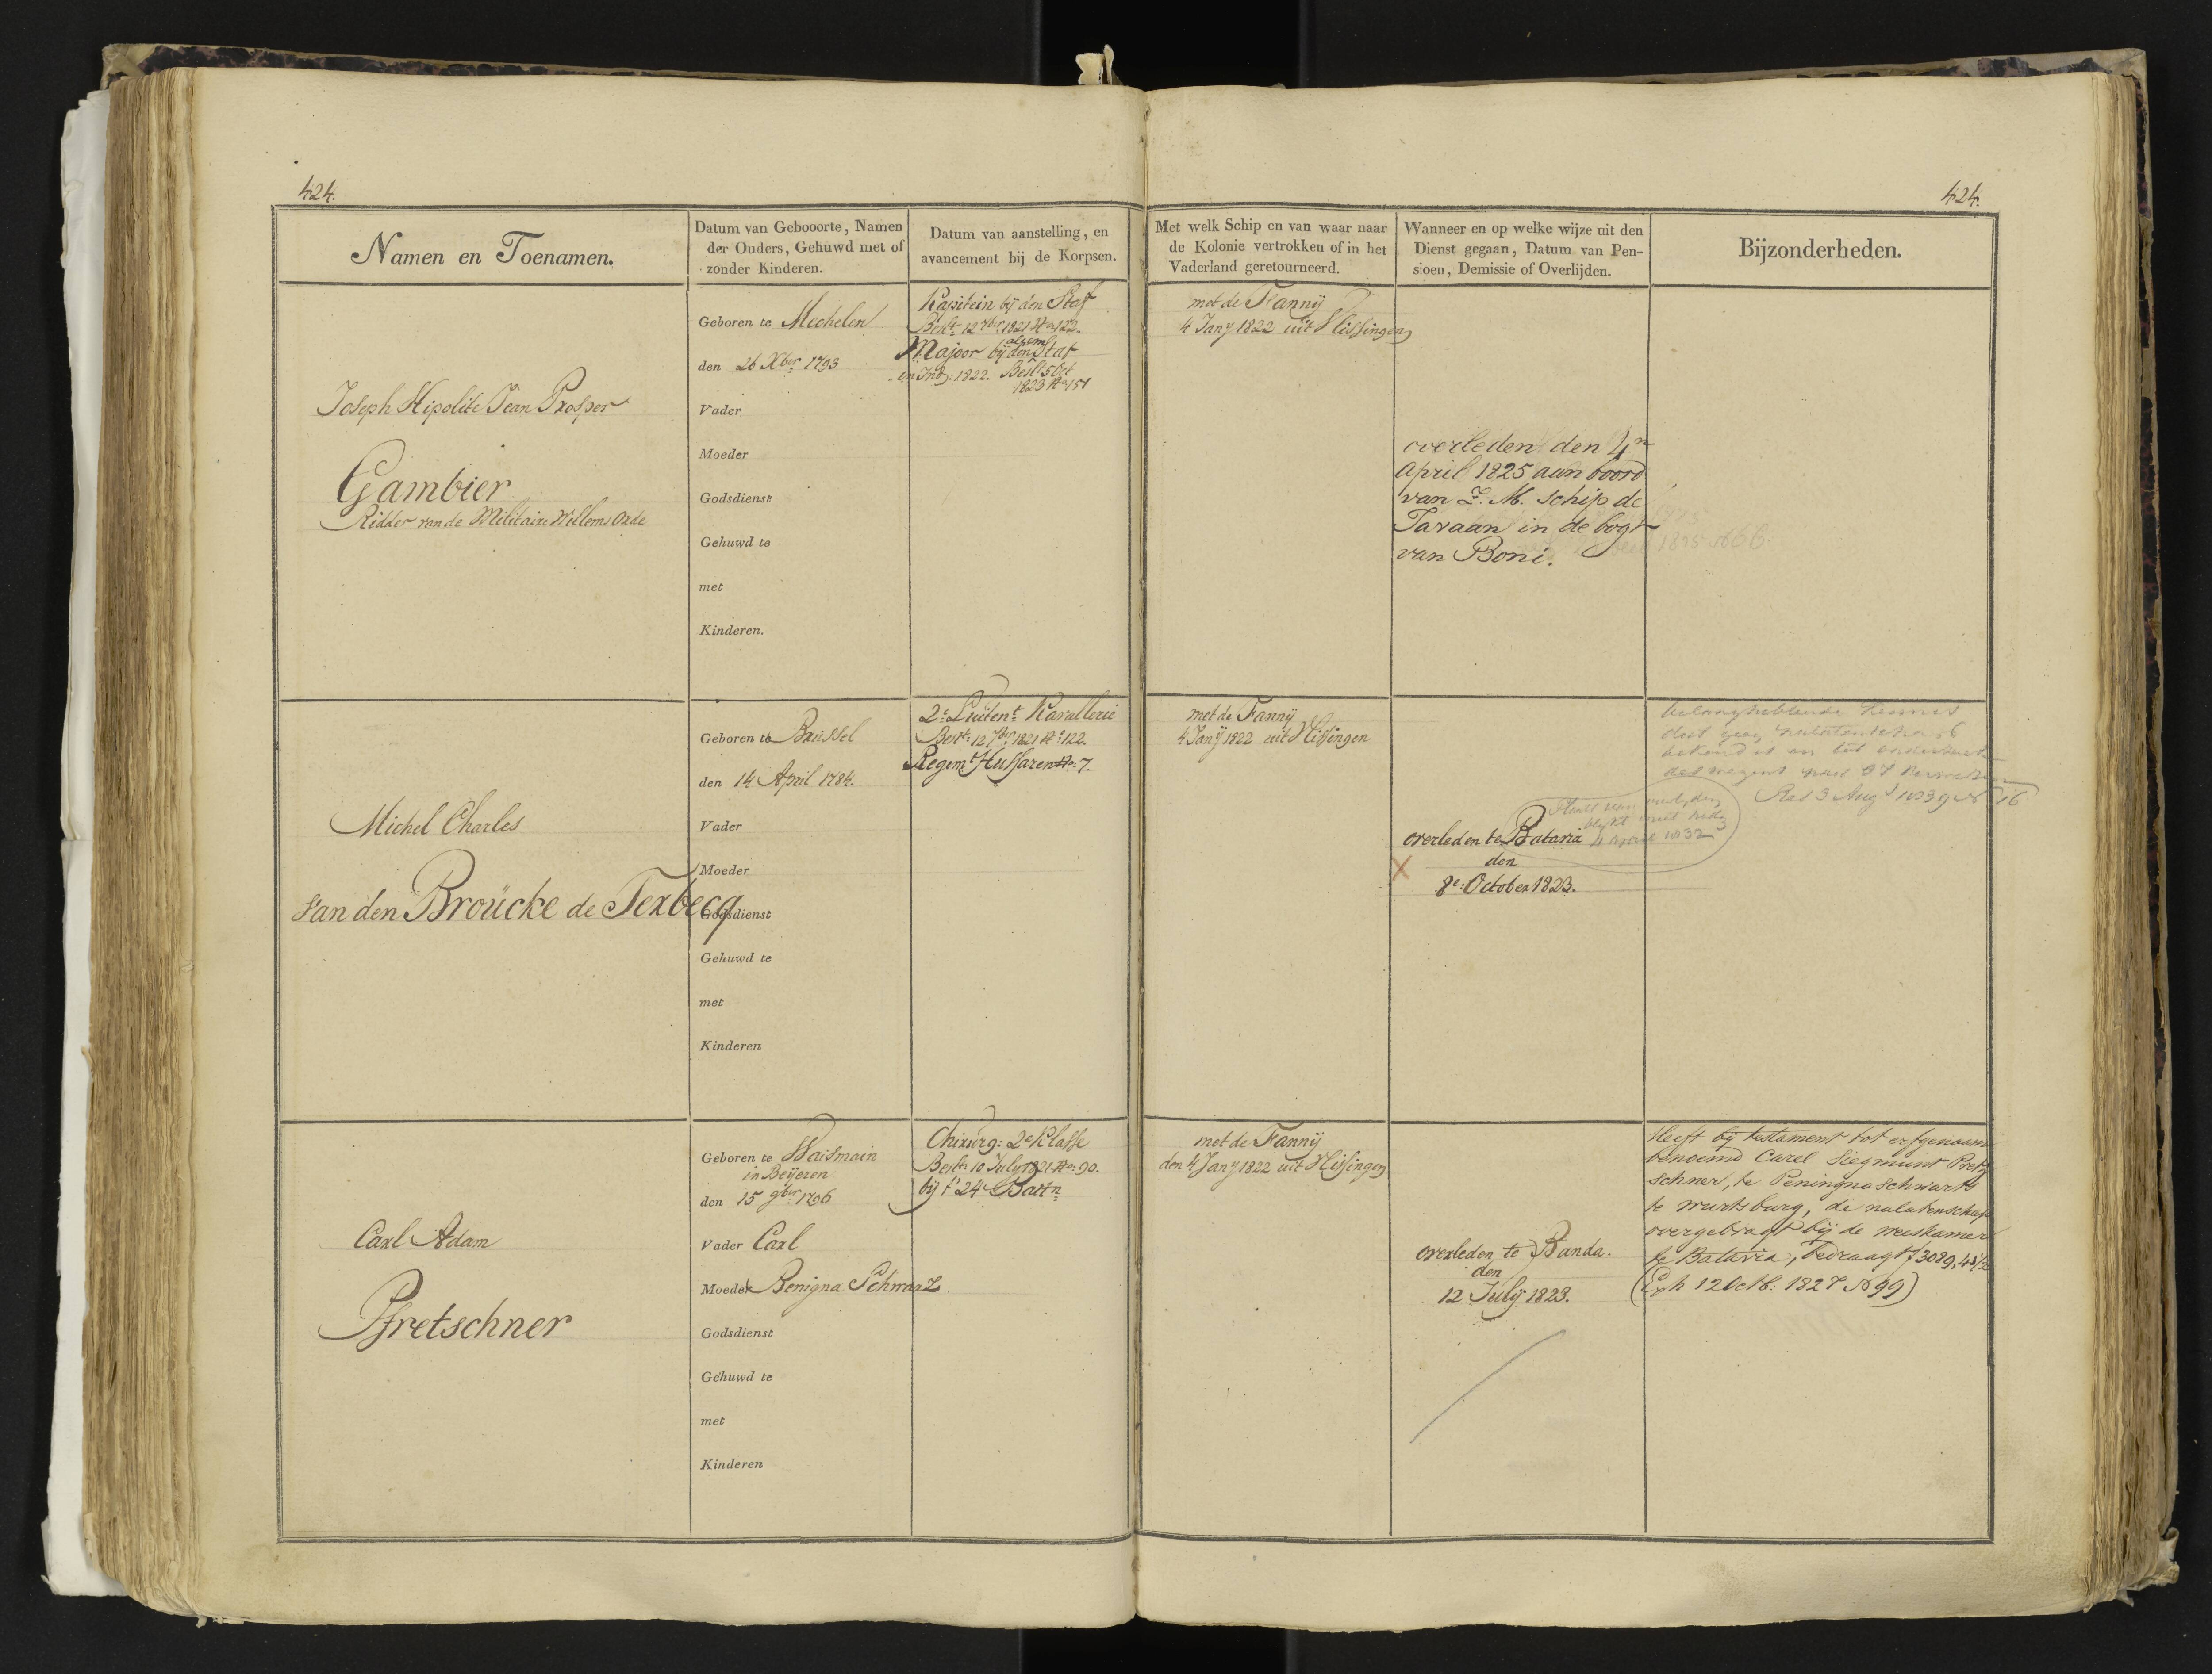 424.
424.
Namen en Toenamen.
Datum van Gebooorte, Namen
der Ouders, Gehuwd met of
zonder Kinderen.
Datum van aanstelling, en
avancement bij de Korpsen.
Met welk Schip en van waar naar
de Kolonie vertrokken of in het
Vaderland geretourneerd.
Wanneer en op welke wijze uit den
Dienst gegaan, Datum van Pen-
sioen, Demissie of Overlijden.
Bijzonderheden.
Joseph Hipolite Jean Prosper
Gambier
Ridder van de Militaire Willems Orde
Geboren te Mechelen
den 26 Xber 1793
Vader
Moeder
Godsdienst
Gehuwd te
met
Kinderen.
Kapitein bij den Staf
Beslt. 12 7ber 1821 No. 122.
Majoor bij den algem Staf
in Ind: 1822. Beslt 5 Oct
1823 No 151
met de Fannÿ
4 Jany 1822 uit Vlissingen
overleden den 4n
april 1825 aan boord
van Z. M. Schip de
Javaan in de bogt
van Boni.
Michel Charles
van den Broücke de Terbecq
Geboren te Brussel
den 14 April 1784.
Vader
Moeder
Godsdienst
Gehuwd te
met
Kinderen
2e Luitent. Kavallerie
Beslt: 12 7ber 1821 No: 122.
Regemt Hussaren No. 7.
met de Fannÿ
4 Janÿ 1822 uit Vlissingen
overleden te Batavia
den
8e: October 1823.
4 april 1832
dat geen nalatenschap
bekend is en tot
Res 3 Augs 1839 No 16
Carl Adam
Pfretschner
Geboren te Waismain
in Beijeren
den 15 9ber 1796
Vader Carl
Moeder Benigna Schwarz
Godsdienst
Gehuwd te
met
Kinderen
Chirurg: 2e Klasse
Beslt. 10 July 1821 No: 90.
bij t' 24e Battn
met de Fannÿ
den 4 Jany 1822 uit Vlissingen
overleden te Banda.
den
12 Julÿ 1823.
Heeft bij testament tot erfgenaam
benoemd Carel Siegmunt Pret
schner, te Peningna Schwarts
te wurtsburg, de nalatenschap
overgebragt bij de weeskamer
te Batavia, bedraagt ƒ3089,48½
(Exh 12 Octb: 1827 No 99)